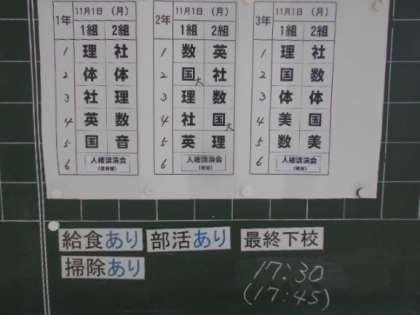 1年 11月1日 (月) 2年 11月1日 (月) 3年 11月1日 (月)
1組 2組 1組 2組 1組 2組
1 理 社 1 数 英 1 理 社
2 体 体 2 国大 社 2 国 数
3 社 理 3 理 数 3 体 体
4 英 数 4 社 国大 4 美 国
5 国 音 5 英 理 5 数 美
6 人権講演会 6 人権講演会 6 人権講演会
給食あり 部活あり 最終下校
掃除あり 17:30
(17:45)